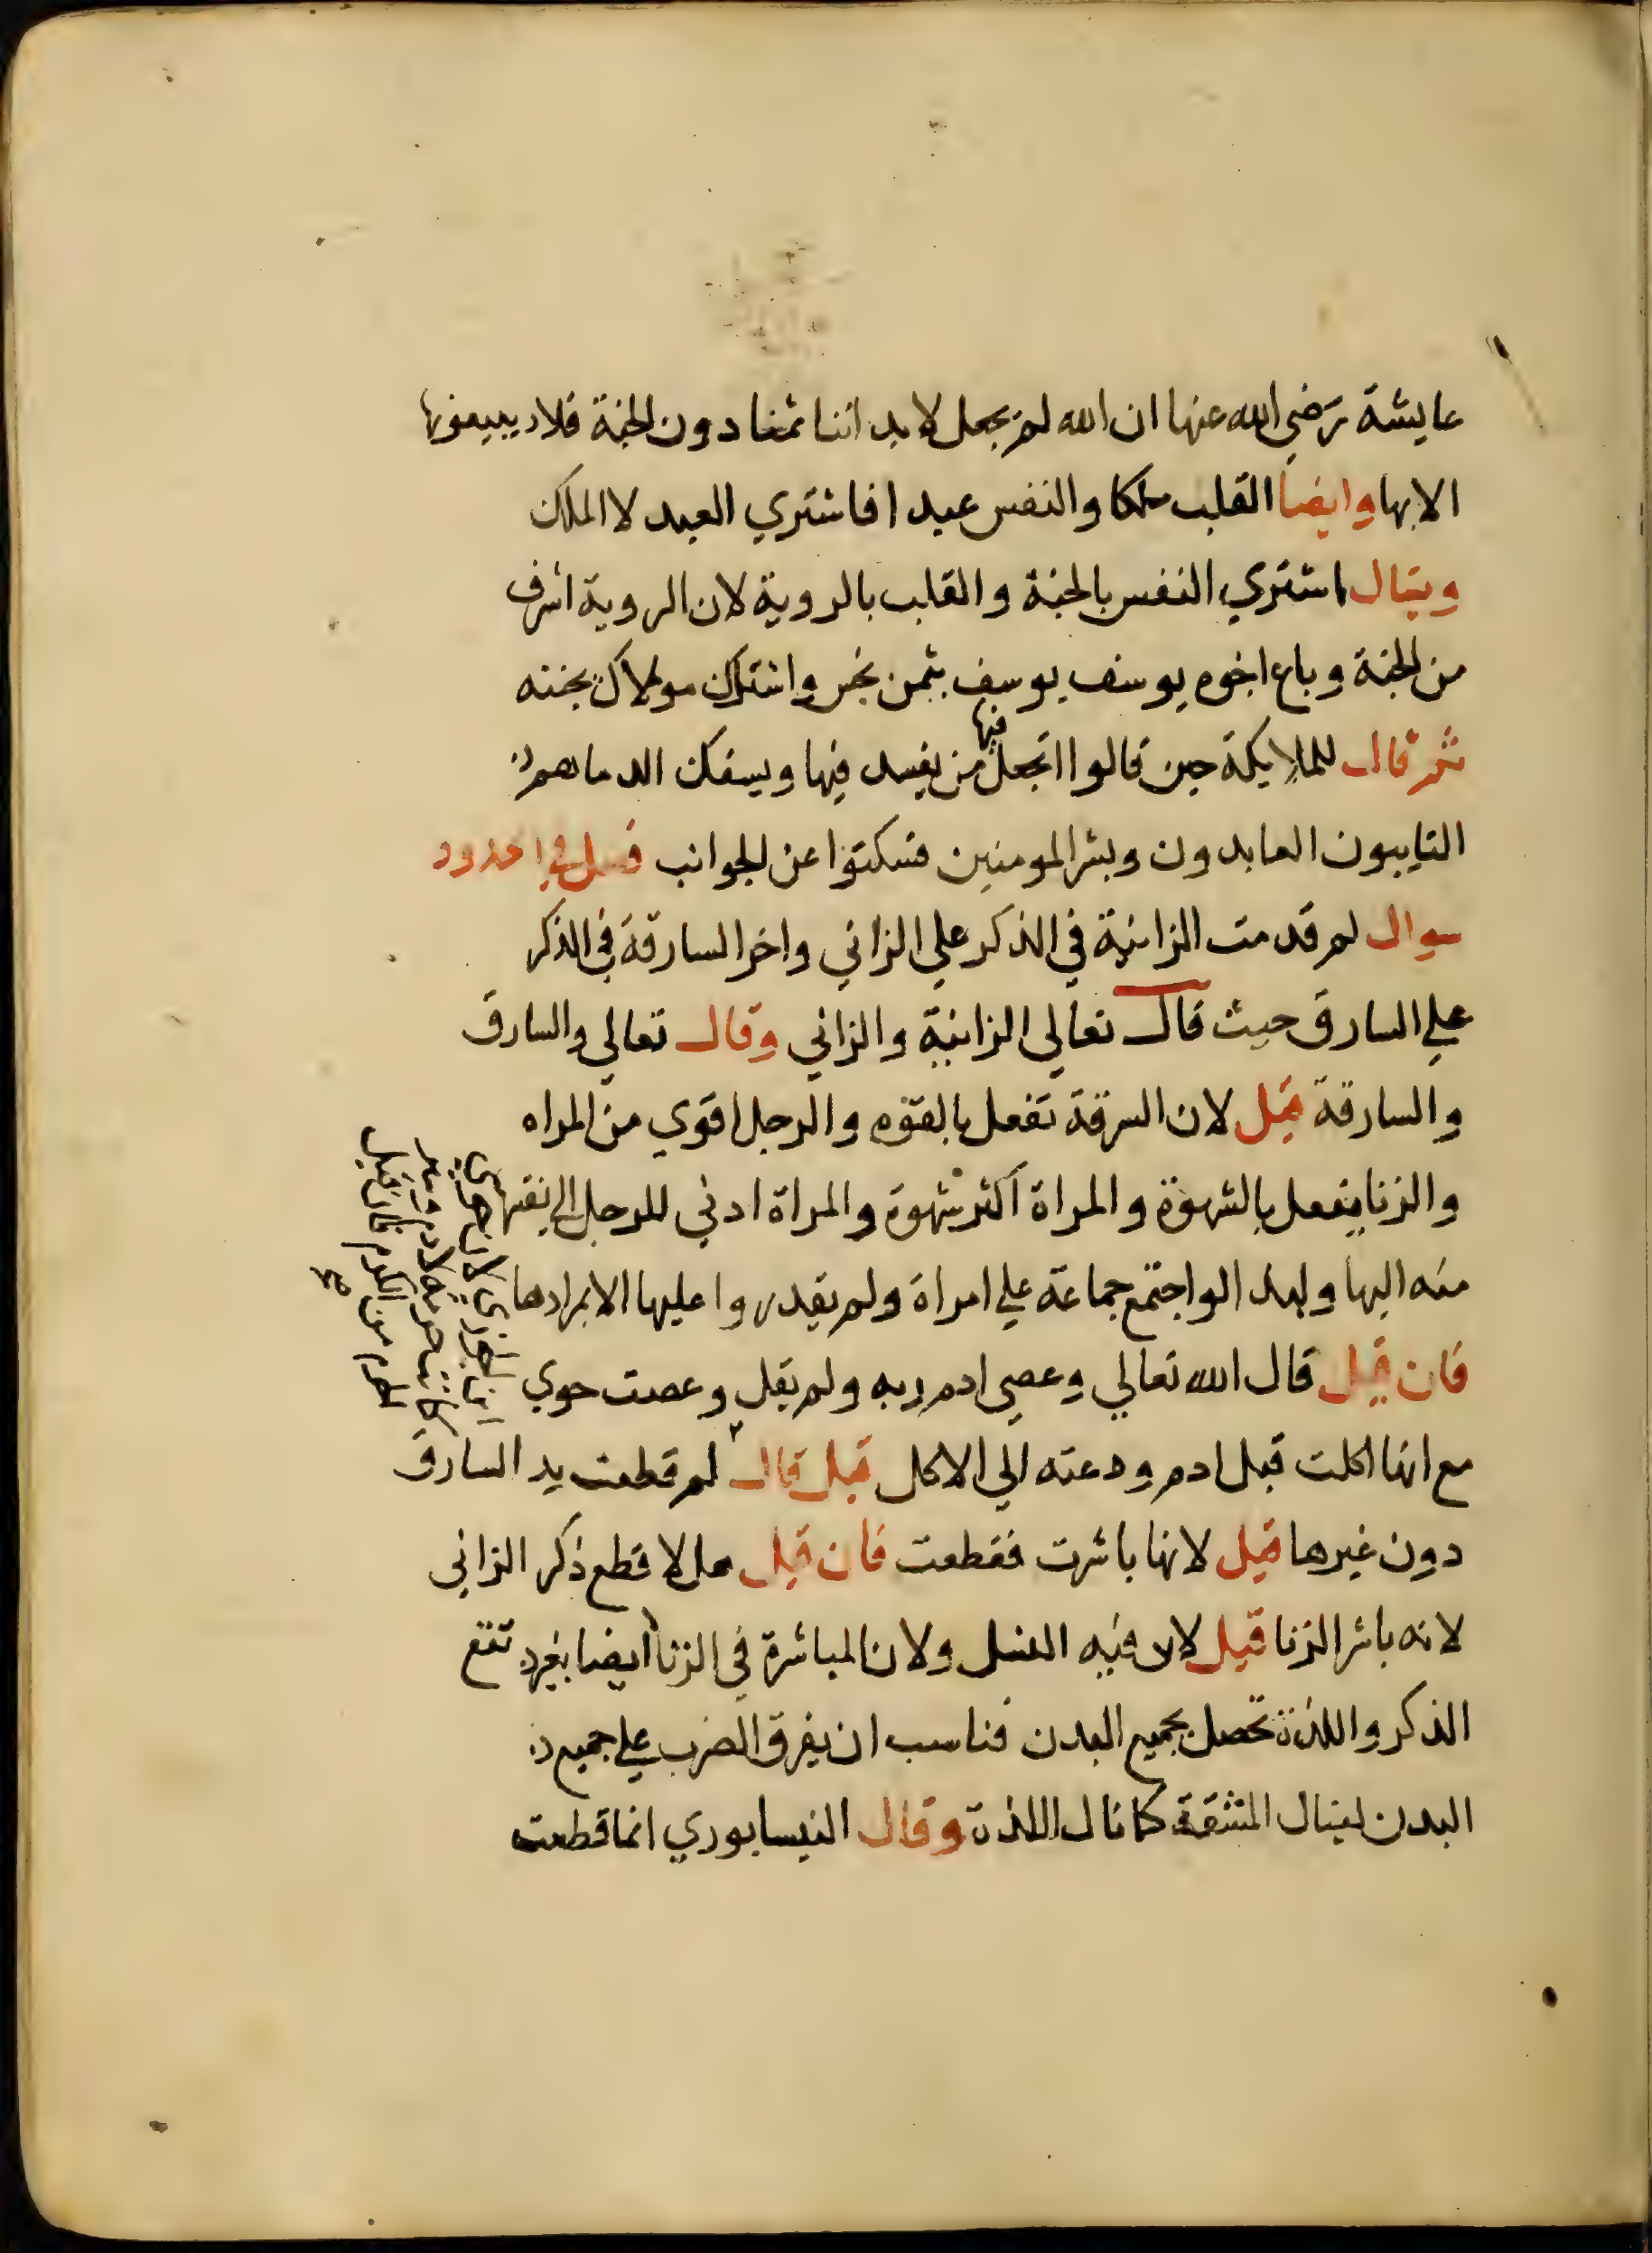 عايشة رَضي الله عنها ان الله لم يجعل لابداننا ثمنا دون الجنة فلا تبيعوها
الابها وايضا القلب ملكا والنفس عبدا فاشتري العبد لا الملك
ويقال اشتري النفس بالجنة والقلب بالروية لان الروية اشرف
من الجنة وباع اخوه يوسف يوسف بثمن بخس واشتراك مولاك بجنته
ثم قال للملايكة حين قالوا اتجعل فيها من يفسد فيها ويسفك الدما هم
التايبون العابدون وبشر المومنين فسكتوا عن الجواب فصل في الحدود
سوال لم قدمت الزانية في الذكر علي الزاني واخر السارقة في الذكر
علي السارق حيث قال تعالي الزانية والزاني وقال تعالي والسارق
والسارقة قيل لان السرقة تفعل بالقوه والرجل اقوي من المراه
والزنا يفعل بالشهوة والمراة اكثر شهوة والمراة ادني للرجل الي نفسها
منه اليها ولهذا لو اجتمع جماعة علي امراة ولم يقدروا عليها الا بمرادها
فان قيل قال الله تعالي وعصي ادم ربه ولم يقل وعصت حوي
مع انها اكلت قبل ادم ودعته الي الاكل قيل قال لم قطعت يد السارق
دون غيرها قيل لانها باشرت فقطعت فان قيل هل لا قطع ذكر الزاني
لانه باشر الزنا قيل لان فيه النسل ولان المباشرة في الزنا ايضا بغير تقع
الذكر واللذة تحصل بجميع البدن فناسب ان يفرق الضرب علي جميع
البدن لينال المشقة كما نال اللذة وقال النيسابوري انما قطعت